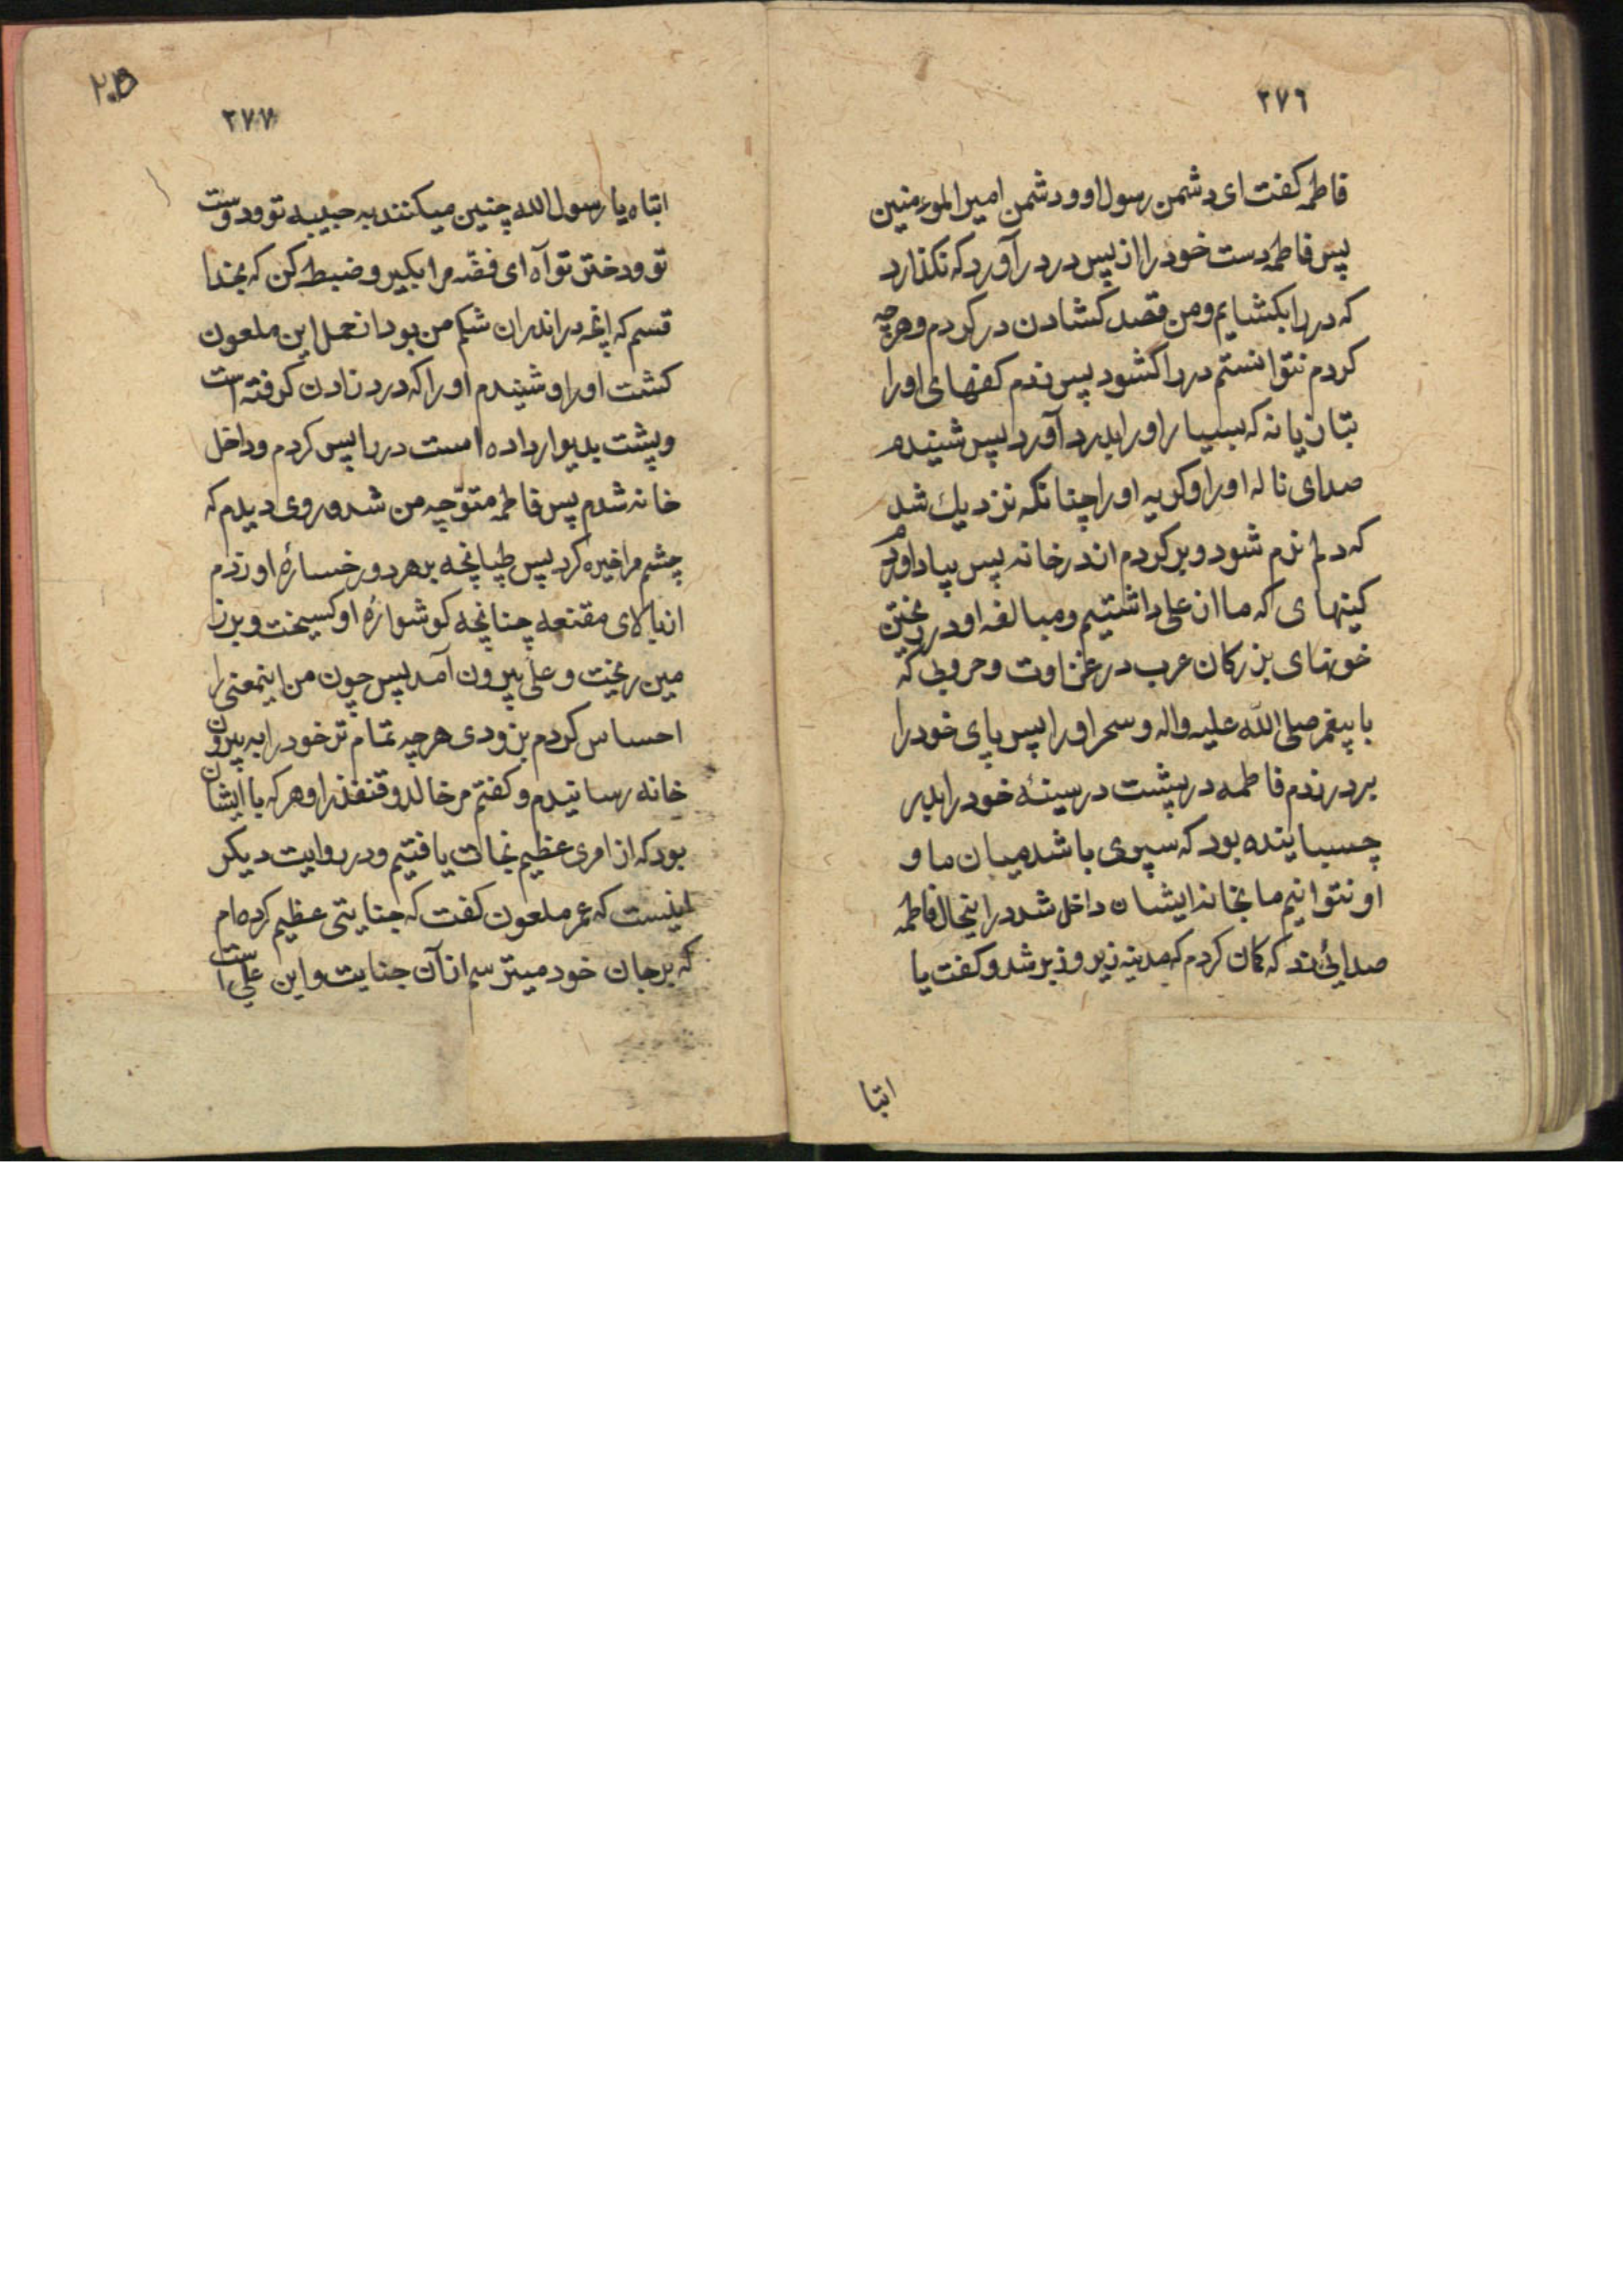 ٢٧٦
فاطمه کفت ای دشمن رسول او و دشمن امیر المؤمنین
پس فاطمه دست خود را از پس در در آورد که نکذارد
که در را بکشایم و من قصد کشادن در کردم و هر چه
کردم نتوانستم در را کشود پس زدم کفهای او را
بتازیانه که بسیار او را بدرد آورد پس شنیدم
صدای ناله او را و کریه او را چنانکه نزدیك شد
که دلم نرم شود و بر کردم از در خانه پس بیاد آوردم
کینهای که ما از علی داشتیم و مبالغه او در ریختن
خونهای بزرکان عرب در غزاوت و حروبی که
با پیغمبر صلی الله علیه واله و سحر او را پس پای خود را
بر در زدم فاطمه در پشت در سینهٔ خود را بدر
چسباینده بود که سپری باشد میان ما و
او نتوانیم ما بخانه ایشان داخل شد در اینحال فاطمه
صدائی زد که کمان کردم که مدینه زیر و زبر شد و کفت یا
ابتا
٢٠٥
٢٧٧
ابتاه یا رسول الله چنین میکنند به حبیبه تو و دوست
تو و دختر تو آه ای فضّه مرا بکیر و ضبط کن که بخدا
قسم که آنچه در اندران شکم من بود از حمل این ملعون
کشت او را و شنیدم او را که درد زادن کرفته است
و پشت بدیوار داده است در را پس کردم و داخل
خانه شدم پس فاطمه متوّجه من شد و روی دیدم که
چشم مرا خیره کرد پس طپانچه بر هر دو رخسارهٔ او زدم
از بالای مقنعه چنانچه کوشوارهٔ او کسیخت و بر ز
مین ریخت و علی بیرون آمد پس چون من اینمعنی را
احساس کردم بزودی هر چه تمام تر خود را به بیرون
خانه رسانیدم و کفتم مر خالد و قنفذ را و هر که با ایشان
بود که از امری عظیم نجات یافتیم و در روایت دیکر
اینست که عمر ملعون کفت که جنایتی عظیم کرده ام
که بر جان خود میترسم از آن جنایت و این علی است